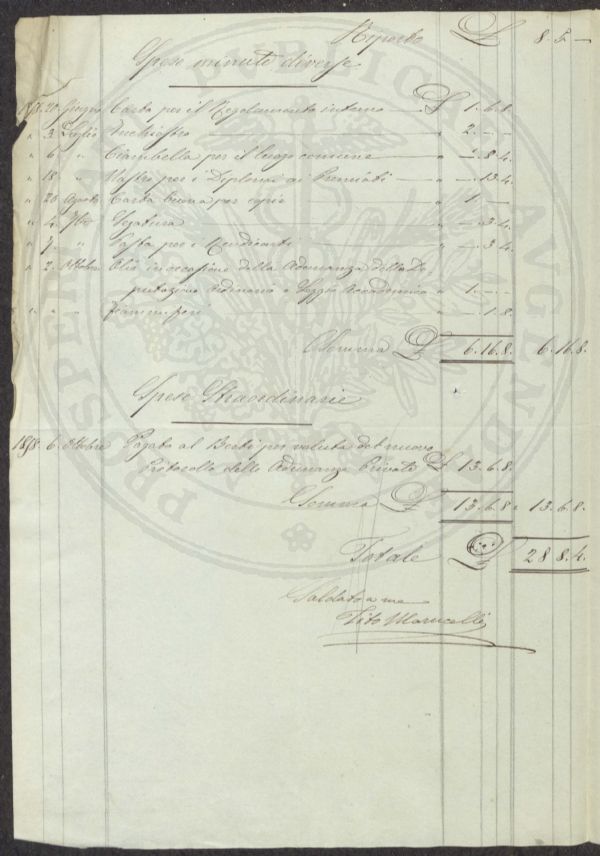 Riporto £ 8. 5. —
Spese minute diverse
20 Giugno Carta per il Regolamento interno £ 1. 6. 8.
" 3 Luglio Inchiostro " 2. — —
" 6 " Ciambella per il luogo comune " —. 8. 4.
" 18 " Nastro per i Diplomi ai Premiati " —. 13. 4.
" 20 Agosto Carta buona per copie " 1. — —
" 4 7bre Legatura " —. 3. 4.
" " per i " —. 3. 4.
" 2 Ottobre Olio in occasione della Adunanza della De
putazione ordinaria e Accademica " 1. — —
" " " Fiammiferi " —. 1. 8.
Somma £ 6. 16. 8. 6. 16. 8.
Spese Straordinarie
1858. 6. Ottobre Pagato al Berti per valuta del nuovo
Protocollo delle Adunanze Private £ 13. 6. 8.
Somma £ 13. 6. 8. 13. 6. 8.
Totale £ 28 8. 4.
Saldato a me
Tito Marucelli
PROSPERITATI PUBLICAE AVGENDAE